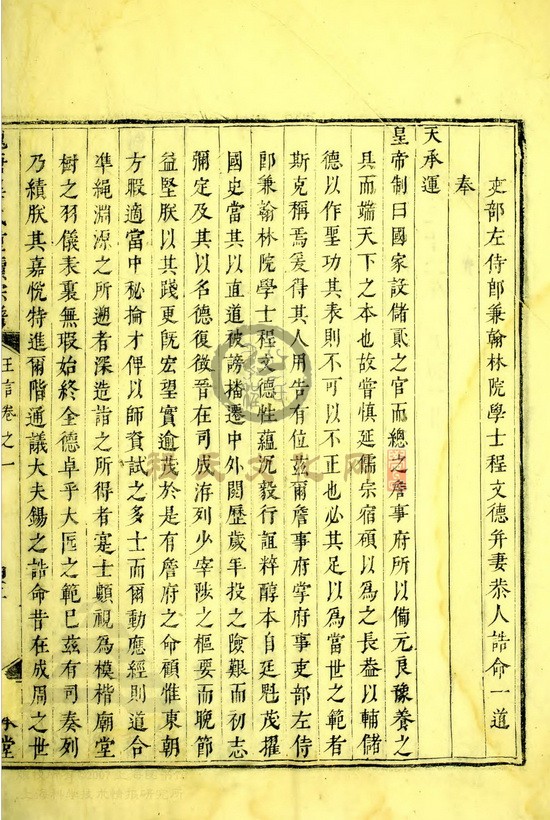 吏部左侍郎兼翰林院學士程文德并妻恭人誥命一道
奉
天承運
皇帝制曰國家設儲貳之官而總之詹事府所以備元良豫養之
具而端天下之本也故嘗慎延儒宗宿碩以為之長葢以輔儲
德以作聖功其表則不可以不正也必其足以為當世之範者
斯克稱焉爰得其人用告有位茲爾詹事府掌府事吏部左侍
郎兼翰林院學士程文德性蘊沉毅行誼粹醇本自廷魁茂擢
國史當其以直道被謗播遷中外閱歷歲年投之險艱而初志
彌定及其以名德復徵晉在司成洊列少宰陟之樞要而晚節
益堅朕以其踐更既宏望實逾茂於是有詹府之命顧惟東朝
方暇適當中秘掄才俾以師資試之多士而爾動應經則道合
準繩淵源之所遡者深造詣之所得者寔士顒視為模楷廟堂
樹之羽儀表裏無瑕始終全德卓乎大臣之範巳茲有司奏列
乃績朕其嘉悅特進爾階通議大夫錫之誥命昔在成周之世
王言卷之一
堂
程氏文化网